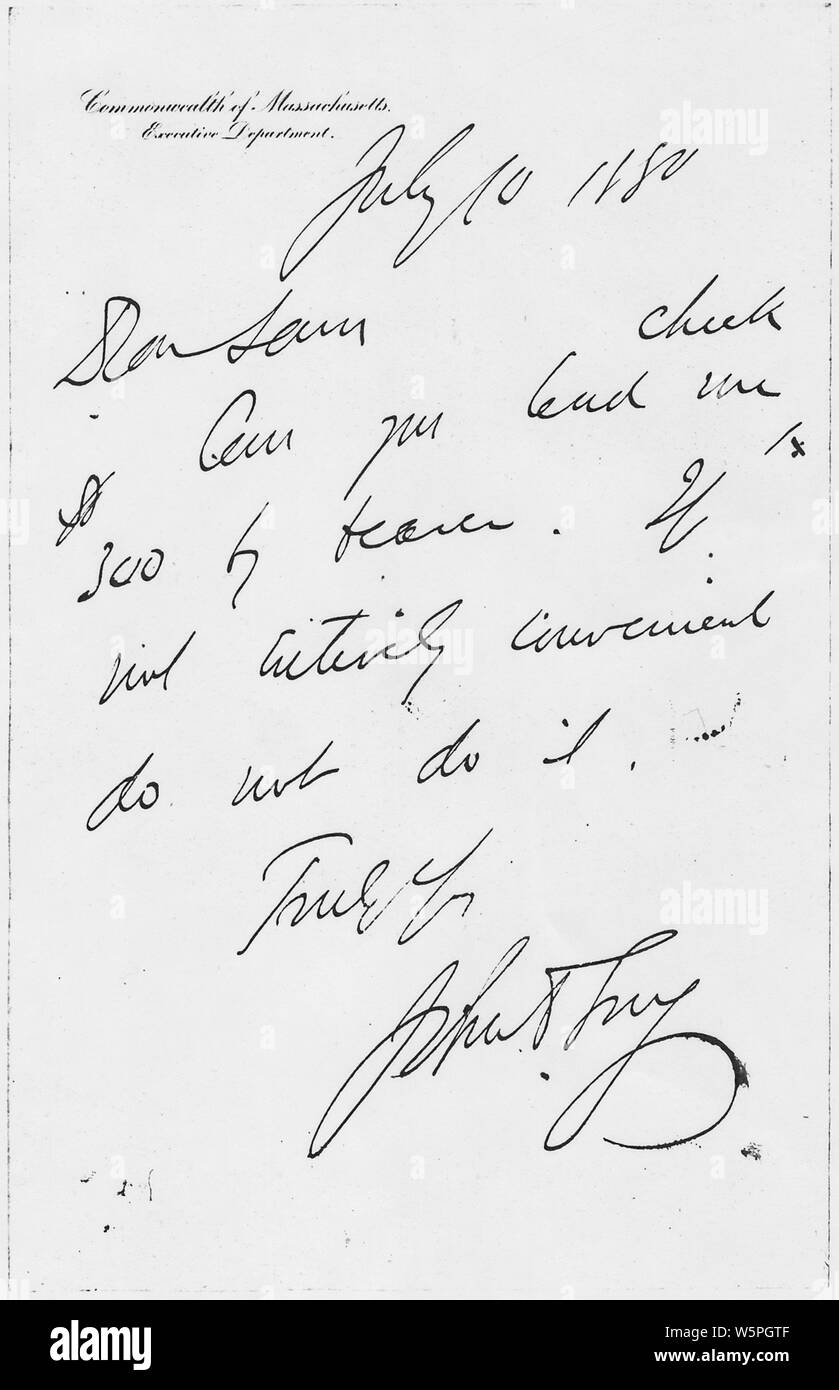 Commonwealth of Massachusetts.
Executive Department.
July 10 1880
Dear Sam check
Can you lend me
$
300 by bearer. If
not entirely convenient
do not do it.
Truly Yrs
John
alamy
alamy
alamy
alamy
Image ID: W5PGTF
www.alamy.com